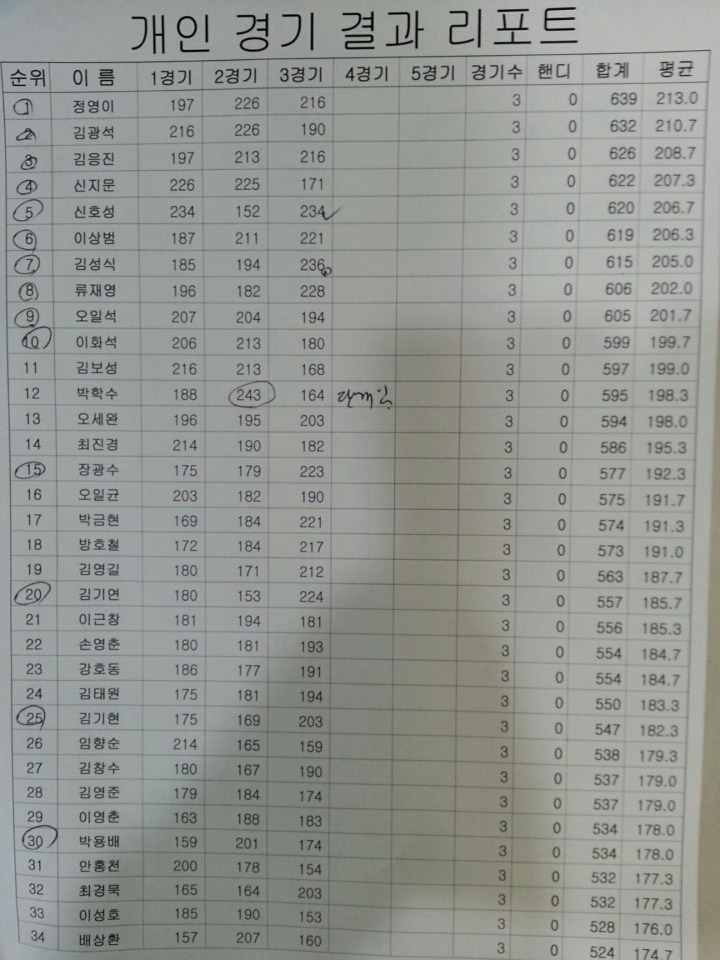 개인 경기 결과 리포트
순위 이름 1경기 2경기 3경기 4경기 5경기 경기수 핸디 합계 평균
1 정영이 197 226 216 3 0 639 213.0
2 김광석 216 226 190 3 0 632 210.7
3 김응진 197 213 216 3 0 626 208.7
4 신지문 226 225 171 3 0 622 207.3
5 신호성 234 152 234 3 0 620 206.7
6 이상범 187 211 221 3 0 619 206.3
7 김성식 185 194 236 3 0 615 205.0
8 류재영 196 182 228 3 0 606 202.0
9 오일석 207 204 194 3 0 605 201.7
10 이화석 206 213 180 3 0 599 199.7
11 김보성 216 213 168 3 0 597 199.0
12 박학수 188 243 164 3 0 595 198.3
13 오세완 196 195 203 3 0 594 198.0
14 최진경 214 190 182 3 0 586 195.3
15 장광수 175 179 223 3 0 577 192.3
16 오일균 203 182 190 3 0 575 191.7
17 박금현 169 184 221 3 0 574 191.3
18 방호철 172 184 217 3 0 573 191.0
19 김영길 180 171 212 3 0 563 187.7
20 김기연 180 153 224 3 0 557 185.7
21 이근창 181 194 181 3 0 556 185.3
22 손영춘 180 181 193 3 0 554 184.7
23 강호동 186 177 191 3 0 554 184.7
24 김태원 175 181 194 3 0 550 183.3
25 김기현 175 169 203 3 0 547 182.3
26 임향순 214 165 159 3 0 538 179.3
27 김창수 180 167 190 3 0 537 179.0
28 김영준 179 184 174 3 0 537 179.0
29 이영춘 163 188 183 3 0 534 178.0
30 박용배 159 201 174 3 0 534 178.0
31 안홍천 200 178 154 3 0 532 177.3
32 최경묵 165 164 203 3 0 532 177.3
33 이성호 185 190 153 3 0 528 176.0
34 배상환 157 207 160 3 0 524 174.7